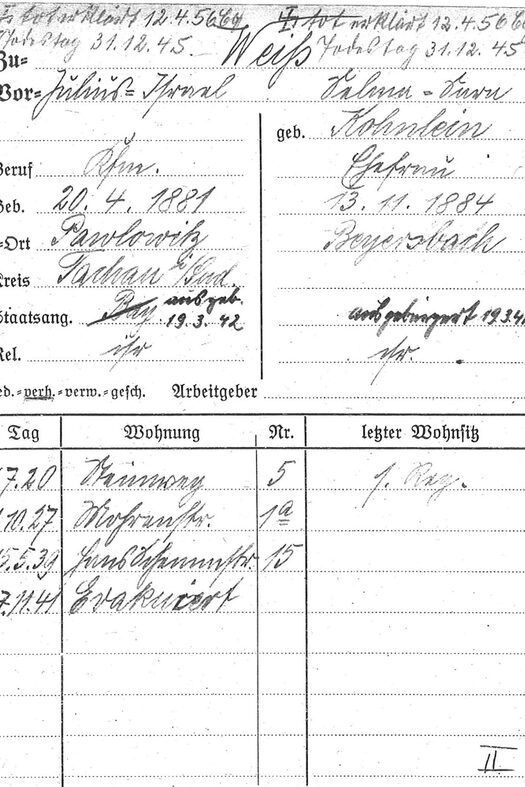 I. tot erklärt 12.4.56 Cbg. II. tot erklärt 12.4.56
Todestag 31.12.45. Weiß Todestag 31.12.45
Zu-
Vor- Julius = Israel Selma = Sara
geb. Kohnlein
Beruf Kfm. Ehefrau
Geb. 20. 4. 1881 13. 11. 1884
-Ort Pawlowitz Beyersbach
Kreis Tachau i/Sud.
Staatsang. Bay ausgeb. 19.3.42 ausgebürgert 19.3.4
Rel. isr isr.
led.-verh.-verw.-gesch. Arbeitgeber
Tag Wohnung Nr. letzter Wohnsitz
7.20 Steinweg 5 s. Reg.
10.27 Mohrenstr. 1a
15.5.39 Hans Schemmstr. 15
7.11.41 Evakuiert
II